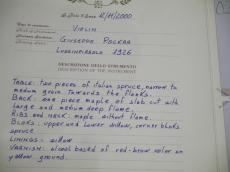 12/11/2000
VIOLIN
GIUSEPPE
1926
DESCRIZIONE DELLO STRUMENTO
DESCRIPTION OF THE INSTRUMENT
TABLE: two pieces of italian spruce, narrow to
medium grain towards the flanks.
BACK: one piece maple of slab cut with
large and medium deep flame.
RIBS AND NECK: maple without flame.
BLOKS: upper and lower willow, corner bloks
spruce
LININGS: willow
VARNISH: alcool based of red-brow color on
yellow ground.